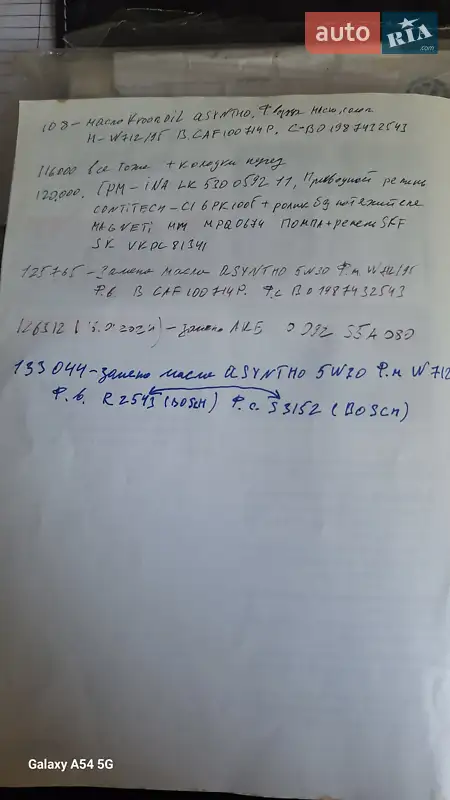 auto RIA .com
108 - масло Kroon oil ASYNTHO, Ф воздух масло, салон
М - W712/95 В. CAF100714P. С - BO 1987432543
116000 все тоже + колодки перед
120,000. ГРМ - INA LK 530 0592 11, Приводной ремень
CONTITECH - CI 6PK1005 + ролик без натяжителя
MAGNETi MM MPQ0674 ПОМПА + ремень SKF
SK VKPC 81341
125765 - Замена масла ASYNTHO 5W30 Ф.м W712/95
Ф.в. B CAF100714P. Ф.с BO 1987432543
126312 - замена АКБ 0 092 S5A 080
133044 - замена масла ASYNTHO 5W30 Ф.м W712
Ф.в. R2543 (BOSCH) Ф.с. S3152 (BOSCH)
Galaxy A54 5G